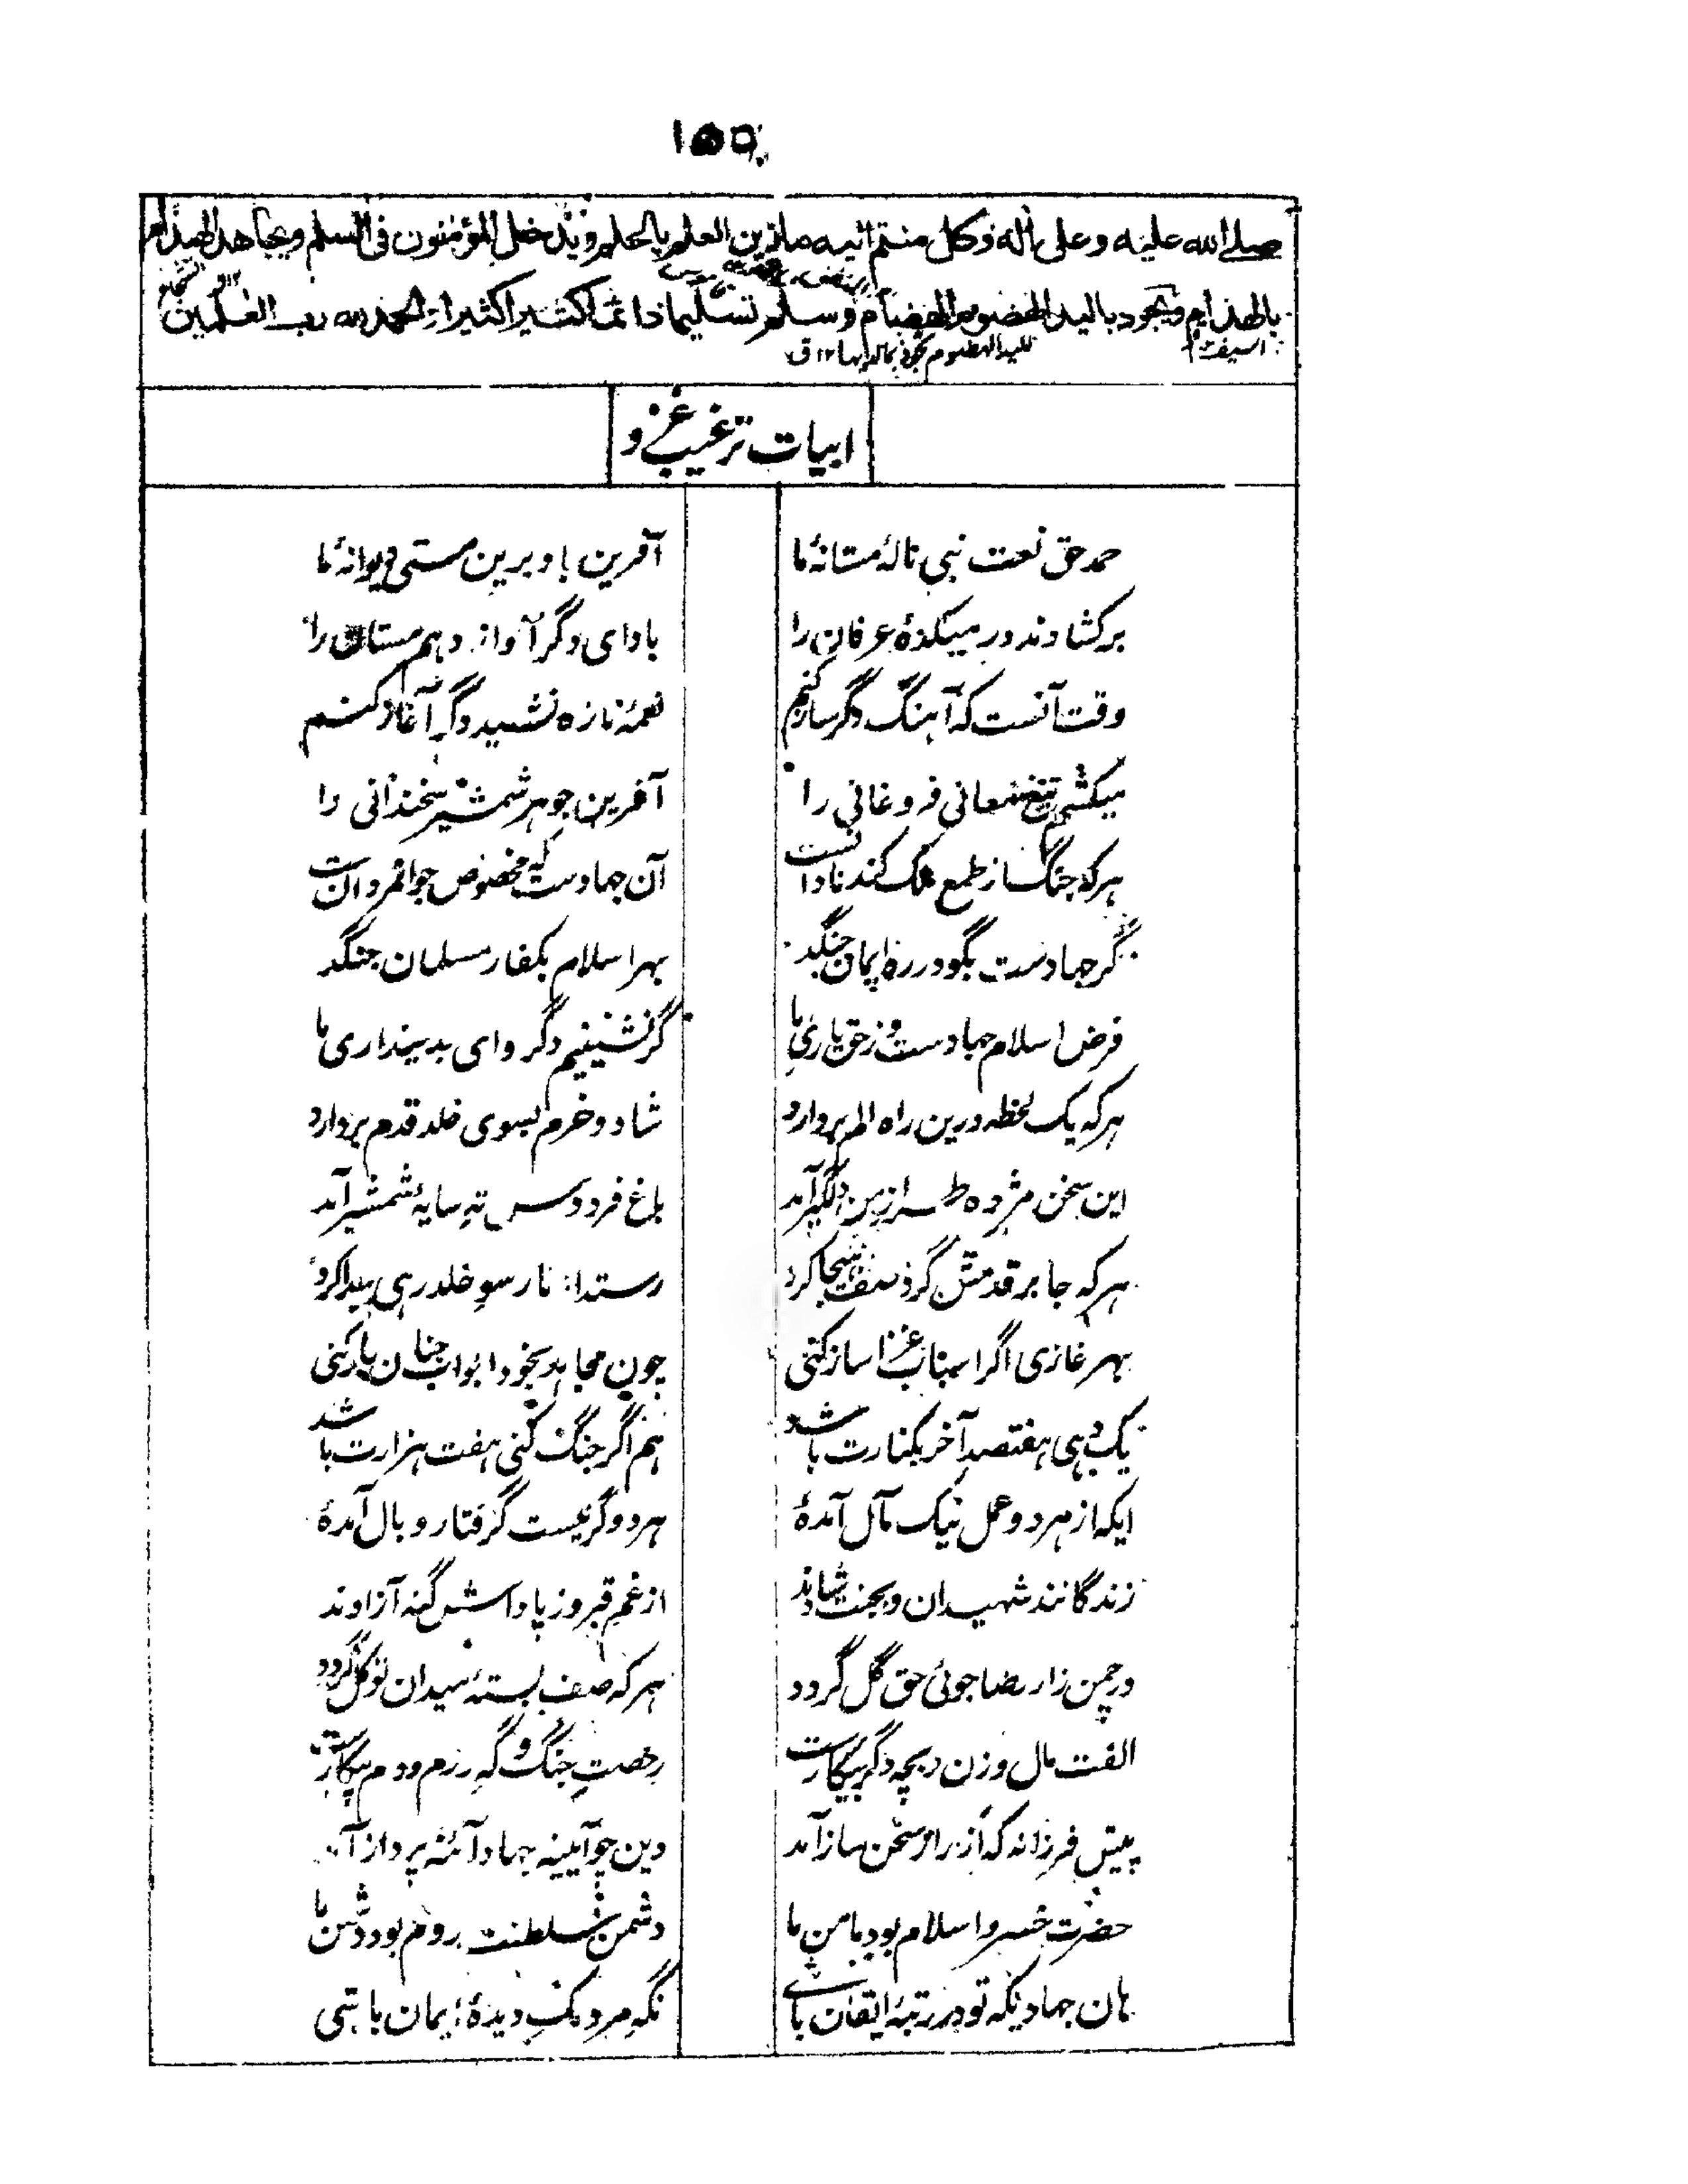 صلى الله عليه وعلى آله وكل منتم اليه ما زين العلم بالحلم ويدخل المؤمنون فى السلم ويجاهد الهذام
بالهذام ويجود باليد الهضوم الهضام وسلم تسليما دائما كثيرا كثيرا والحمد لله رب العلمين
ابیات ترغیب غزو
حمد حق نعت نبی نالۂ مستانۂ ما
آفرین باد برین مستی دیوانۂ ما
برکشادند در میکدۂ عرفان را
بادای دگر آواز دہم مستان را
وقت آنست که آہنگ دگر ساز کنم
نغمۂ تازہ نشید دگر آغاز کنم
میکشم تیغ معانی فروغانی را
آفرین جوہر شمشیر سخندانی را
ہرکه جنگ از طمع ملک کند نادانست
آن جہادست که مخصوص جوانمردانست
گر جہادست بگو در رہ ایمان جنگد
بہر اسلام بکفار مسلمان جنگد
فرض اسلام جہادست و ز حق یاری ما
گر نشینیم دگر وای بدینداری ما
ہرکه یک لحظه درین راہ الم بردارد
شاد و خرم بسوی خلد قدم بردارد
این سخن مژدہ طراز من دلگیر آمد
باغ فردوس ته سایۂ شمشیر آمد
ہرکه جا بر قدمش گرد صف ہیجا کرد
رست از نار سو خلد رہی پیدا کرد
بہر غازی اگر اسباب غزا ساز کنی
چون مجاہد بخود ابواب جنان باز کنی
یک دہی ہفتصد آخر بکنارت باشد
ہم اگر جنگ کنی ہفت ہزارت باشد
ایکه از ہر دو عمل نیک مآل آمدۂ
ہر دو گر نیست گرفتار وبال آمدۂ
زندگانند شہیدان و بجنت شادند
از غم قبر و ز پاداش گنه آزادند
در چمن زار رضا جوئی حق گل گردد
ہرکه صف بستۂ میدان توکل گردد
الفت مال و زن و بچه دگر بیکارست
رخصت جنگ و گه رزم و دم پیکارست
پیش فرزانه که از راز سخن ساز آمد
دین چو آیینه جہاد آئنه پرداز آمد
حضرت خسرو اسلام بود مامن ما
دشمن سلطنت روم بود دشمن ما
ہان جہادیکه تو در رتبۂ ایقان باشی
نگه مردمک دیدۂ ایمان باشی